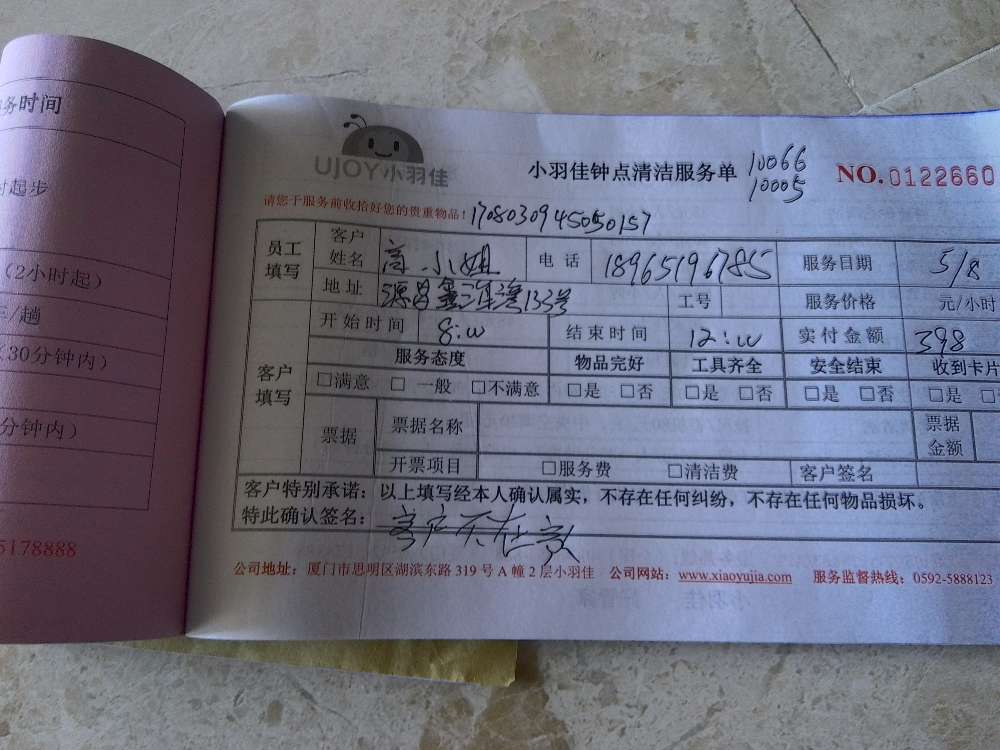 务时间
时起步
(2小时起)
元/趟
(30分钟内)
分钟内)
5178888
UJOY小羽佳
小羽佳钟点清洁服务单
10066
10005
NO.0122660
请您于服务前收拾好您的贵重物品!
1708030945050157
员工填写
客户姓名
高小姐
电话
18965196785
服务日期
5/8
地址
133号
工号
服务价格
元/小时
客户填写
开始时间
8:00
结束时间
12:00
实付金额
398
服务态度
物品完好
工具齐全
安全结束
收到卡片
□满意 □一般 □不满意
□是 □否
□是 □否
□是 □否
□是
票据
票据名称
票据金额
开票项目
□服务费 □清洁费
客户签名
客户特别承诺:以上填写经本人确认属实,不存在任何纠纷,不存在任何物品损坏。
特此确认签名:客户不在家
公司地址:厦门市思明区湖滨东路 319 号 A 幢 2 层小羽佳 公司网站:www.xiaoyujia.com 服务监督热线:0592-5888123